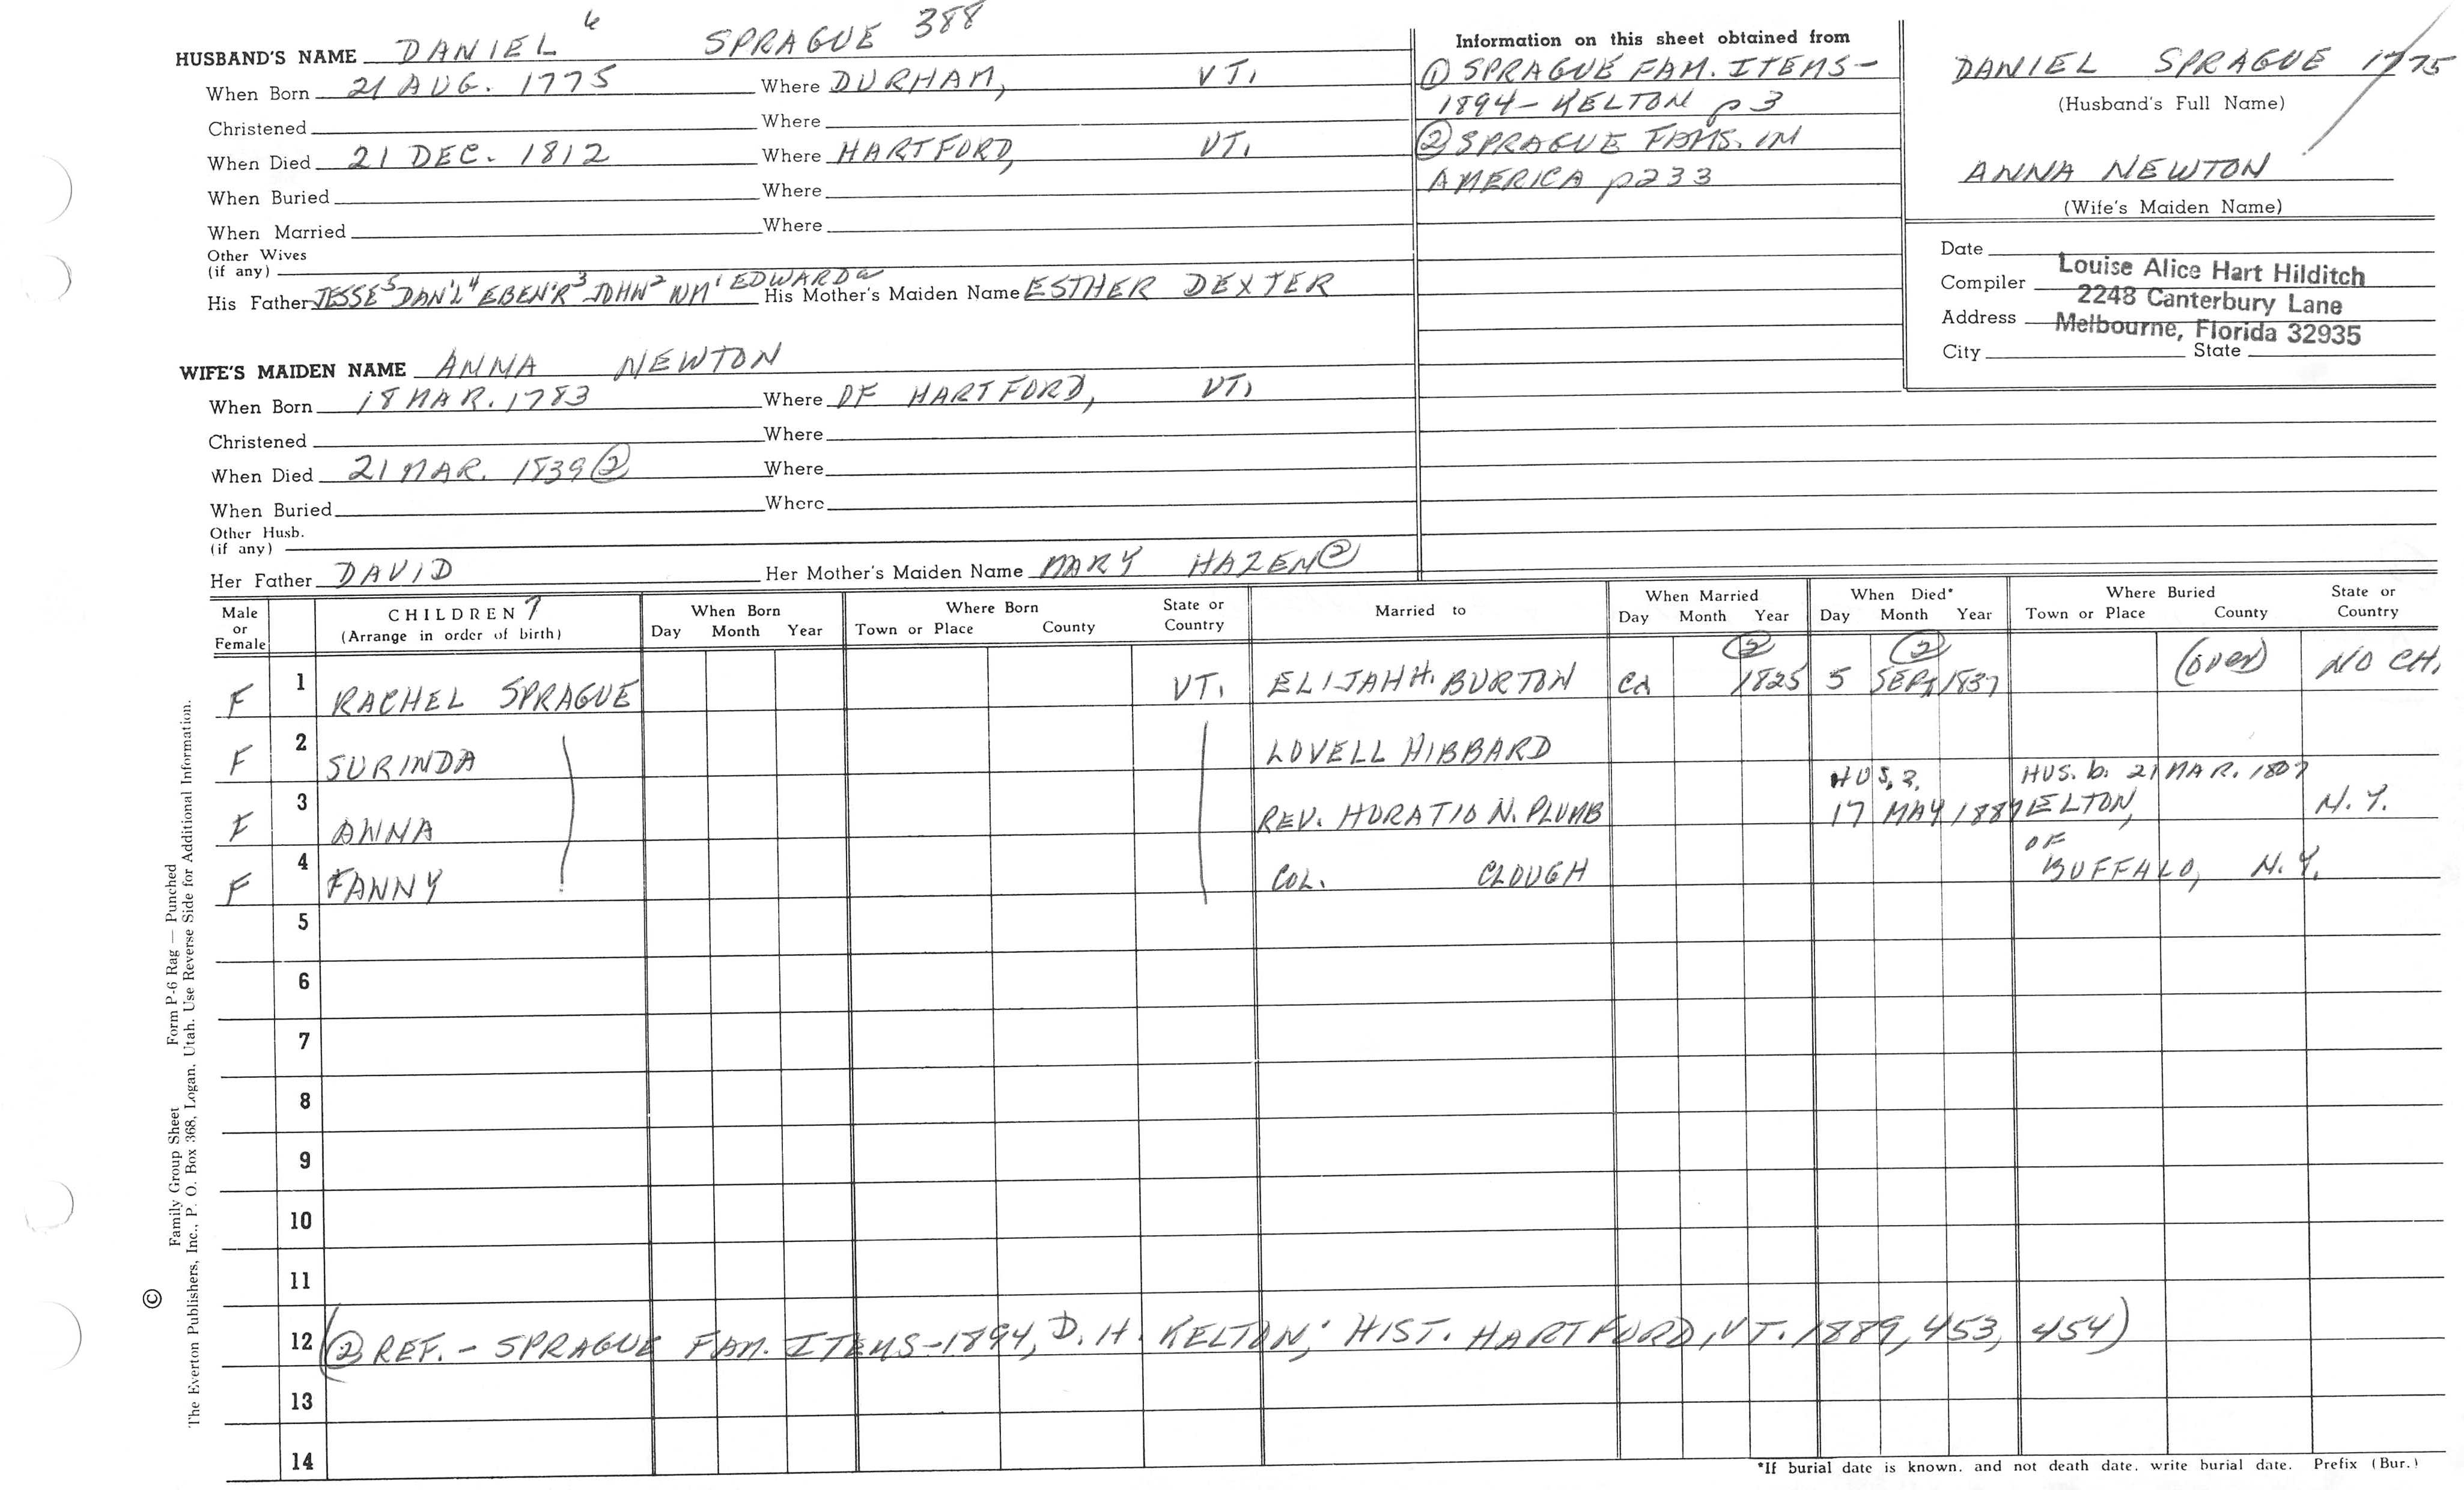 HUSBAND'S NAME DANIEL 6 SPRAGUE 388
When Born 21 AUG. 1775 Where DURHAM, VT.
Christened Where
When Died 21 DEC. 1812 Where HARTFORD, VT.
When Buried Where
When Married Where
Other Wives
(if any)
His Father JESSE5 DAN'L4 EBEN'R3 JOHN2 WM1 EDWARDa His Mother's Maiden Name ESTHER DEXTER
WIFE'S MAIDEN NAME ANNA NEWTON
When Born 18 MAR. 1783 Where OF HARTFORD, VT.
Christened Where
When Died 21 MAR. 1839 ② Where
When Buried Where
Other Husb.
(if any)
Her Father DAVID Her Mother's Maiden Name MARY HAZEN ②
Information on this sheet obtained from
① SPRAGUE FAM. ITEMS-
1894 - KELTON p 3
② SPRAGUE FAMS. IN
AMERICA p233
DANIEL SPRAGUE 1775
(Husband's Full Name)
ANNA NEWTON
(Wife's Maiden Name)
Date
Compiler Louise Alice Hart Hilditch
Address 2248 Canterbury Lane
Melbourne, Florida 32935
City State
Male or Female CHILDREN 7 (Arrange in order of birth) When Born Day Month Year Where Born Town or Place County State or Country Married to When Married Day Month Year When Died* Day Month Year Where Buried Town or Place County State or Country
② ②
F 1 RACHEL SPRAGUE VT. ELIJAH H. BURTON Ca 1825 5 SEPT 1837 (over) NO CH.
F 2 SURINDA LOVELL HIBBARD
HUS. 2. HUS. b. 21 MAR. 1807
F 3 ANNA REV. HORATIO N. PLUMB 17 MAY 1887 ELTON, N.Y.
OF
F 4 FANNY COL. CLOUGH BUFFALO, N.Y.
5
6
7
8
9
10
11
12 (② REF. - SPRAGUE FAM. ITEMS-1894, D. H. KELTON; HIST. HARTFORD, VT. 1889, 453, 454)
13
14
*If burial date is known, and not death date, write burial date. Prefix (Bur.)
© Family Group Sheet Form P-6 Rag — Punched
The Everton Publishers, Inc., P. O. Box 368, Logan, Utah. Use Reverse Side for Additional Information.